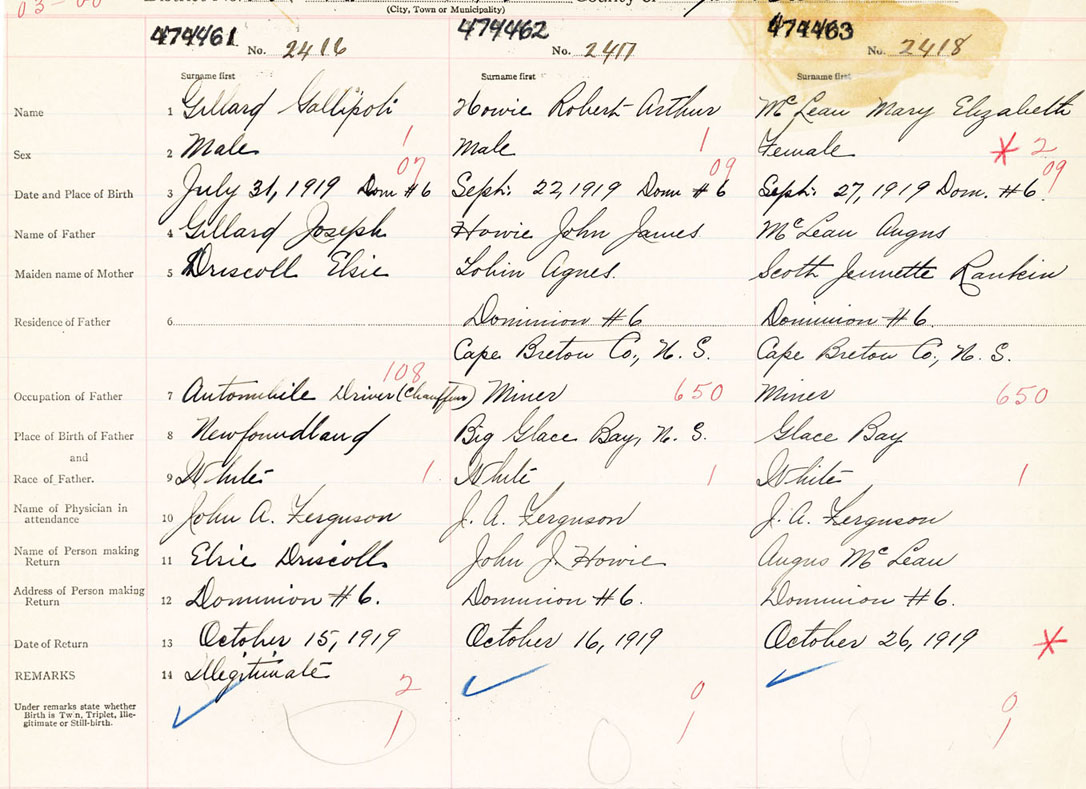 03-00
(City, Town or Municipality)
474461 474462 474463
No. 2416 No. 2417 No. 2418
Surname first Surname first Surname first
Name 1 Gillard Gallipoli Howie Robert Arthur McLean Mary Elizabeth
Sex 2 Male 1 Male 1 Female * 2
07 09 09
Date and Place of Birth 3 July 31, 1919 Dom #6 Sept. 22, 1919 Dom #6 Sept. 27, 1919 Dom. #6.
Name of Father 4 Gillard Joseph Howie John James McLean Angus
Maiden name of Mother 5 Driscoll Elsie Agnes. Scott Jennette Rankin
Residence of Father 6 Dominion #6 Dominion #6.
Cape Breton Co., N. S. Cape Breton Co., N. S.
108
Occupation of Father 7 Automobile Driver (Chauffeur) Miner 650 Miner 650
Place of Birth of Father 8 Newfoundland Big Glace Bay, N. S. Glace Bay
and
Race of Father. 9 White 1 White 1 White 1
Name of Physician in
attendance 10 John A. Ferguson J. A. Ferguson J. A. Ferguson
Name of Person making
Return 11 Elsie Driscoll John J. Howie Angus McLean
Address of Person making
Return 12 Dominion #6. Dominion #6. Dominion #6.
Date of Return 13 October 15, 1919 October 16, 1919 October 26, 1919 *
REMARKS 14 Illegitimate
2 0 0
Under remarks state whether
Birth is Twin, Triplet, Ille-
gitimate or Still-birth.
1 1 1